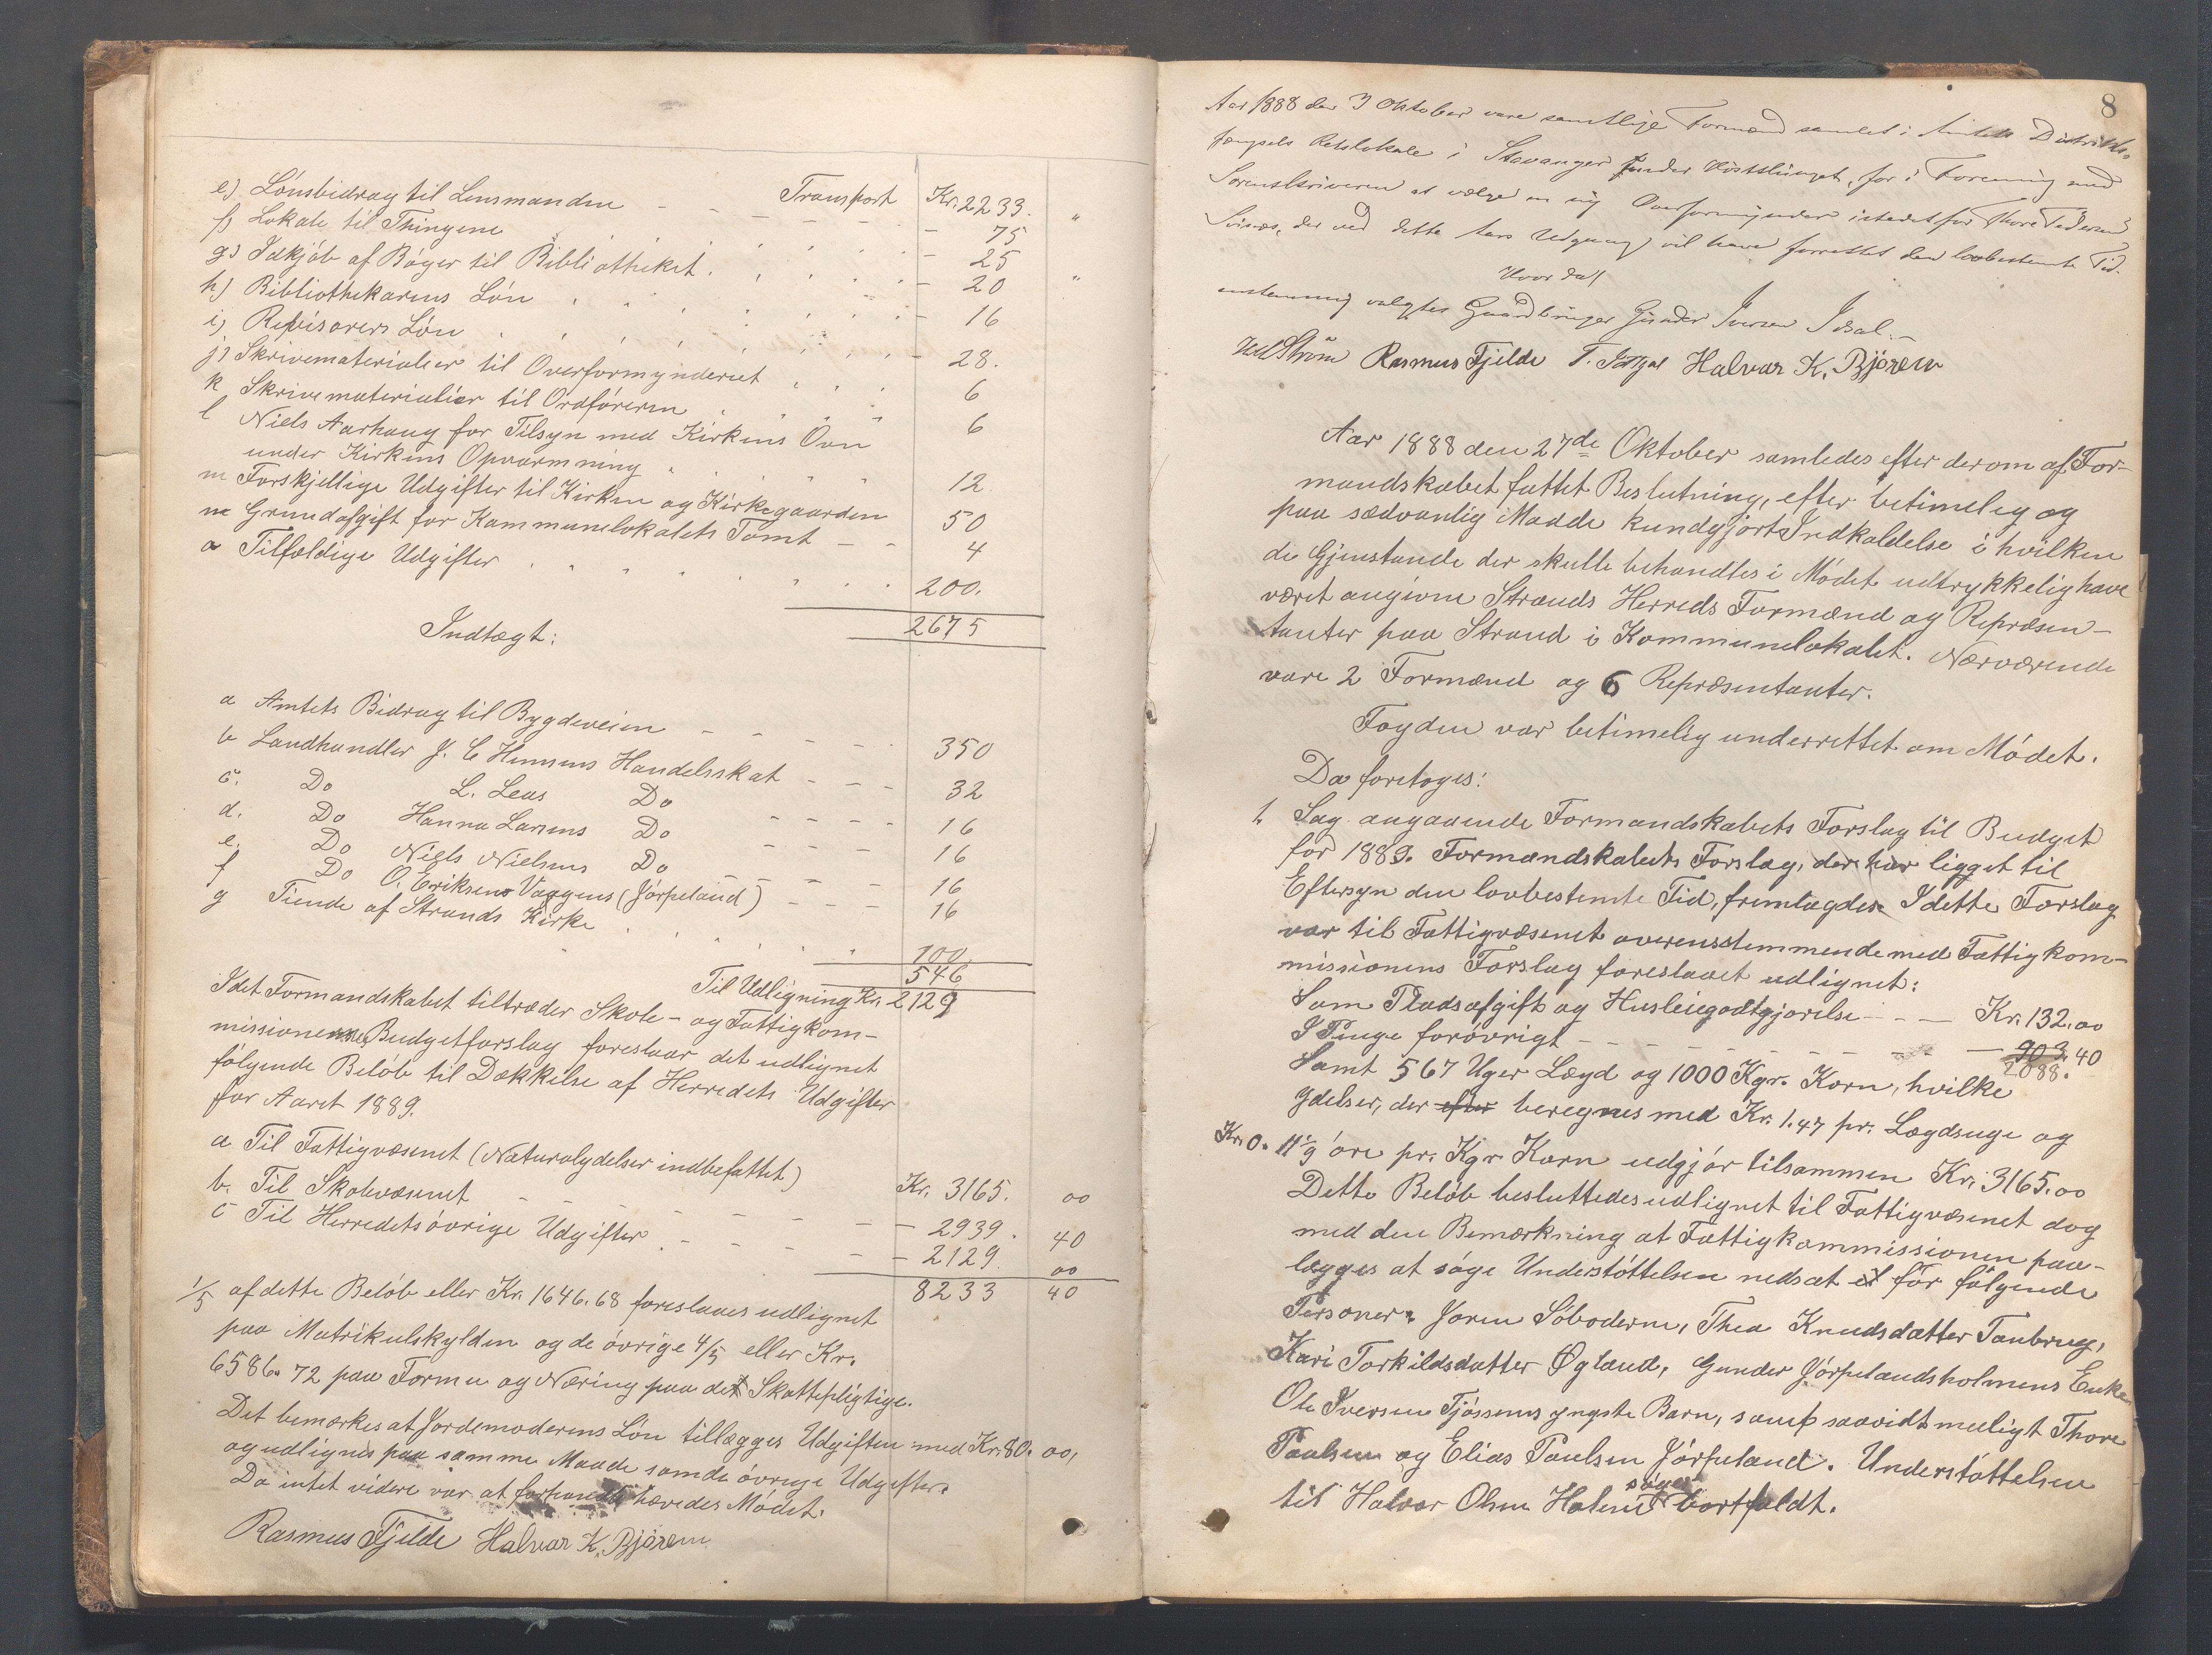 Transport Kr. 2233. "
e) Lönsbidrag til Lensmanden - - - - - 75
f) Lokale til Thingene - 25
g) Idkjöb af Böger til Bibliotheket - 20 "
h) Bibliothekarens Lön - 16
i) Revisorers Lön - 28.
j) Skrivematerialier til Overformynderiet 6
k Skrivematerialier til Ordföreren 6
l Niels Aarhaug for Tilsyn med Kirkens Ovn
under Kirkens Opvarmning 12
m Forskjellige Udgifter til Kirken og Kirkegaarden 50
n Grundafgift for Kommunelokalets Tomt - - 4
o Tilfældige Udgifter 200.
2675
Indtægt:
a Amtets Bidrag til Bygdeveien - - - - - 350
b Landhandler J. C Hensens Handelsskat - - - 32
c. Do L. Leas Do - - - - 16
d. Do Hanna Larsens Do - - - 16
e. Do Niels Nielsens Do - - - - 16
f Do O. Eriksens Vaagens (Jörpeland) - - - 16
g Tiende af Strands Kirke 100.
546
Til Udligning Kr. 2129
Idet Formandskabet tiltræder Skole- og Fattigkom-
missionens Budgetforslag foreslaar det udlignet
fölgende Belöb til Dækkelse af Herredets Udgifter
for Aaret 1889.
a Til Fattigvæsenet (Naturalydelser indbefattet) Kr. 3165. 00
b. Til Skolevæsenet - - - - - - - - 2939. 40
c Til Herredets övrige Udgifter - - - - - 2129. 00
8233 40
1/5 af dette Belöb eller Kr. 1646.68 foreslaaes udlignet
paa Matrikulskylden og de övrige 4/5 eller Kr.
6586.72 paa Formue og Næring paa de Skattepligtige.
Det bemærkes at Jordemoderens Lön tillægges Udgiften med Kr. 80.00,
og udlignes paa samme Maade som de övrige Udgifter.
Da intet videre var at hævedes Mödet.
Rasmus Fjelde Halvar K. Bjøreim
8
Aar 1888 den 3 Oktober vare samtlige Formænd samlet i Amtets Distrikts-
fængsels Retslokale i Stavanger under Höstthinget, for i Forening med
Sorenskriveren at vælge en ny Overformynder istedetfor Thore Pedersen
Svines, der ved dette Aars Udgang vil have forrettet den lovbestemte Tid.
Hvor da
enstemmig valgtes Gaardbruger Gunder Iversen Idsal.-
Rasmus Fjelde Halvar K. Bjøreim
Aar 1888 den 27de Oktober samledes efter derom af For-
mandskabet fattet Beslutning, efter betimelig og
paa sædvanlig Maade kundgjort Indkaldelse i hvilken
de Gjenstande der skulle behandles i Mödet udtrykkelig have
været angivne Strands Herreds Formænd og Repræsen-
tanter paa Strand i Kommunelokalet. Nærværende
vare 2 Formænd og 6 Repræsentanter.
Fogden var betimelig underrettet om Mödet.
Da foretoges:
1. Sag angaaende Formandskabets Forslag til Budget
for 1889. Formandskabets Forslag, der har ligget til
Eftersyn den lovbestemte Tid, fremlagdes. I dette Forslag
var til Fattigvæsenet overensstemmende med Fattigkom-
missionens Forslag foreslaaet udlignet:
Som Pladsafgift og Husleiegodtgjörelse - - - Kr. 132.00
I Penge forövrigt - - - - - - - - - 903.40
2088.
Samt 567 Uger Lægd og 1000 Kgr. Korn, hvilke
Ydelser, der efter beregnes med Kr. 1.47 pr. Lægdsuge og
Kr. 0. 11 1/9 öre pr. Kgr Korn udgjör tilsammen Kr. 3165.00
Dette Belöb besluttedes udlignet til Fattigvæsenet dog
med den Bemærkning at Fattigkommissionen paa-
lægges at söge Understöttelsen nedsat for fölgende
Personer: Joren Söboderne, Thea Knudsdatter Taubrug,
Kari Torkildsdatter Øgland, Gunder Jörpelandsholmens Enke
Ole Iversen Fjössens yngste Barn, samt saavidt mueligt Thore
Paulsen og Elias Paulsen Jörpeland. Understöttelsen
söges
til Halvor Olsen Holem bortfaldt.